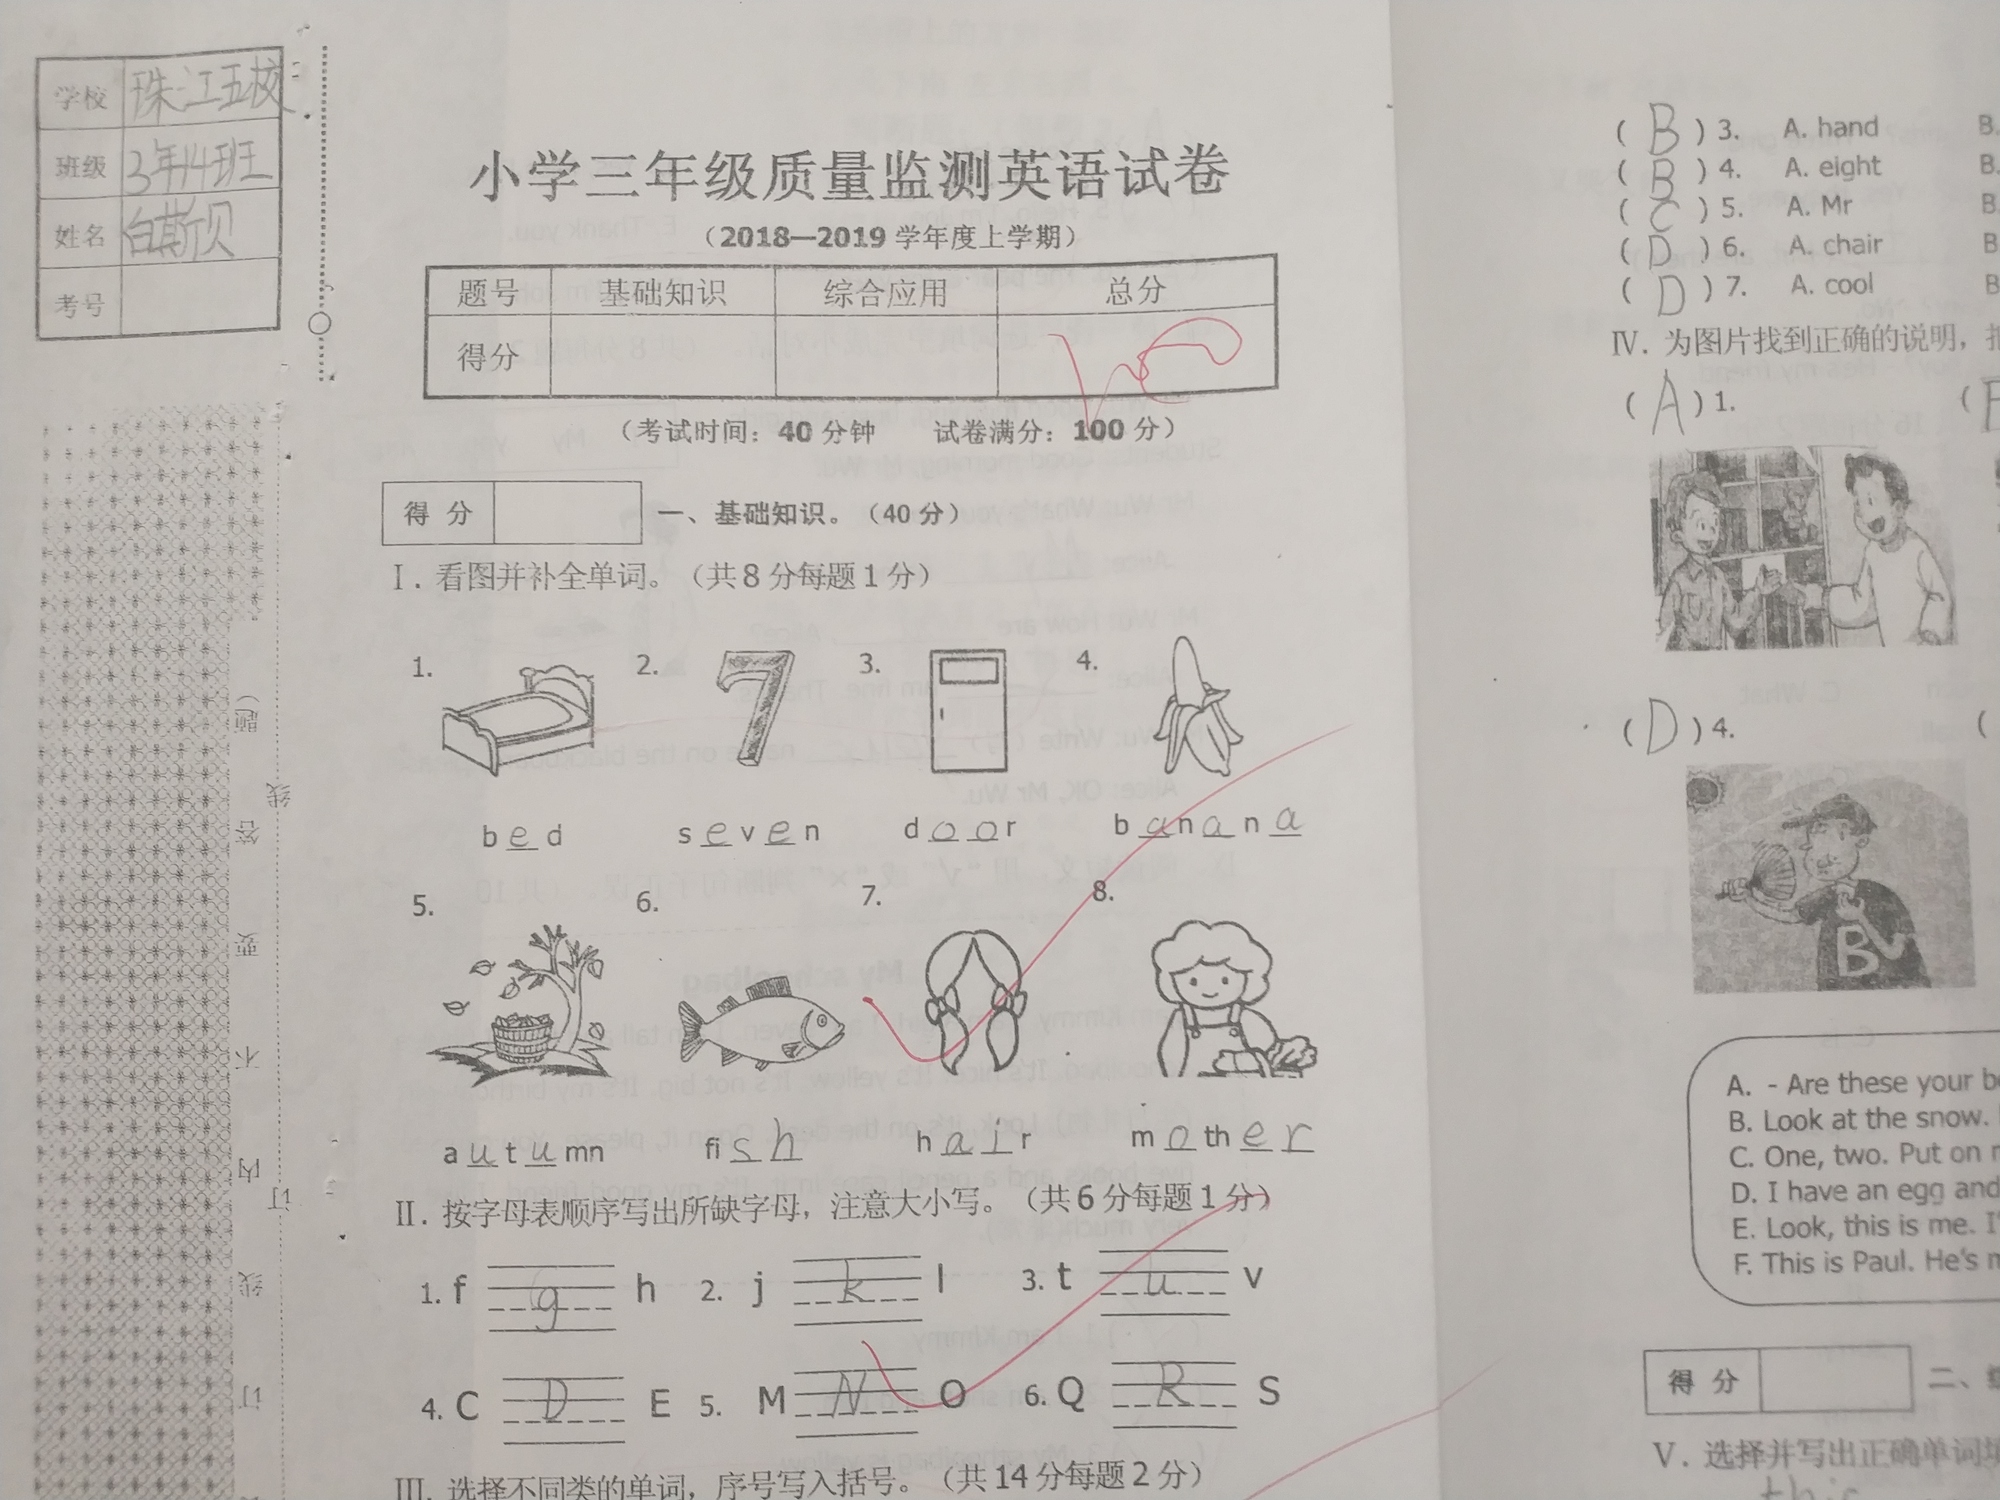 学校 珠江五校
班级 3年14班
姓名 白斯贝
考号
小学三年级质量监测英语试卷
（2018—2019 学年度上学期）
题号 基础知识 综合应用 总分
得分
（考试时间：40 分钟 试卷满分：100 分）
得 分 一、基础知识。（40 分）
I. 看图并补全单词。（共 8 分每题 1 分）
1. 2. 3. 4.
b e d s e v e n d o o r b a n a n a
5. 6. 7. 8.
a u t u mn fi s h h a i r m o th e r
II. 按字母表顺序写出所缺字母，注意大小写。（共 6 分每题 1 分）
1. f g h 2. j k l 3. t u v
4. C D E 5. M N O 6. Q R S
III. 选择不同类的单词，序号写入括号。（共 14 分每题 2 分）
题
答
要
不
内
线
订
线
订
( B ) 3. A. hand B.
( B ) 4. A. eight B.
( C ) 5. A. Mr B.
( D ) 6. A. chair B
( D ) 7. A. cool B
IV. 为图片找到正确的说明，
( A ) 1. (
( D ) 4. (
B
A. - Are these your
B. Look at the snow.
C. One, two. Put on
D. I have an egg and
E. Look, this is me. I'
F. This is Paul. He's
得 分 二、
V. 选择并写出正确单词
this